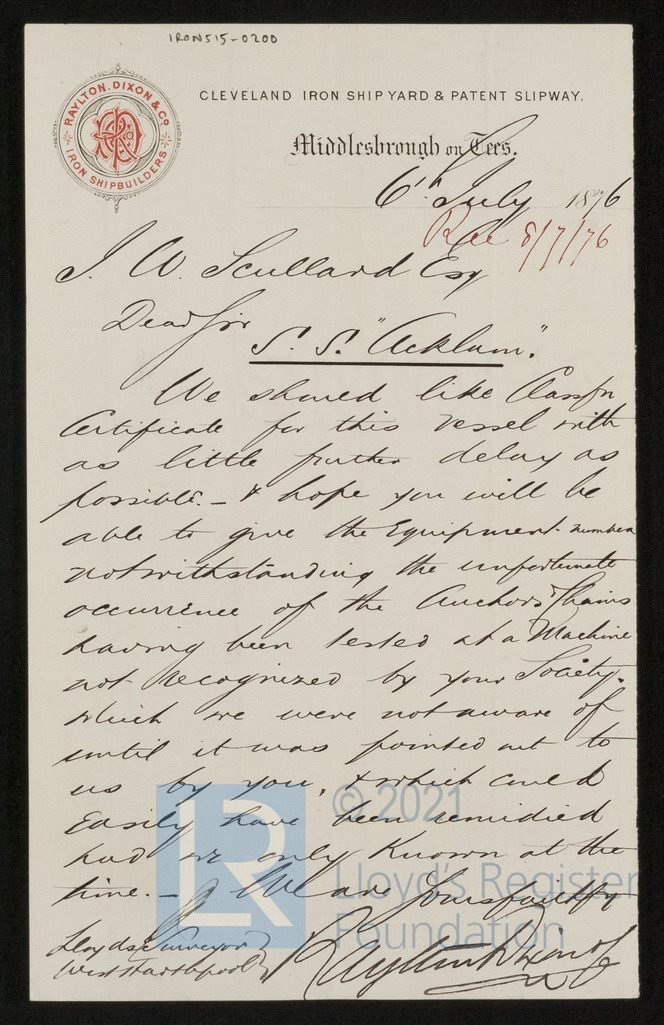 IRON515-0200
RAYLTON. DIXON & Co
IRON SHIPBUILDERS.
CLEVELAND IRON SHIP YARD & PATENT SLIPWAY.
Middlesbrough on Tees.
6th July 1876
Rec 8/7/76
J. W. Scullard Esq
Dear Sir
S. S. "Acklam".
We should like Classfn
Certificate for this vessel with
as little further delay as
possible. - & hope you will be
able to give the Equipment number
notwithstanding the unfortunate
occurrence of the Anchors & Chains
having been tested at a Machine
not recognized by your Society.
which we were not aware of
until it was pointed out to
us by you, & which could
Easily have been remidied
had we only Known at the
time. - We are Yours faithfy
Raylton Dixon & Co
Lloyds Surveyor
West Hartlepool
LR
© 2021
Lloyd's Register
Foundation